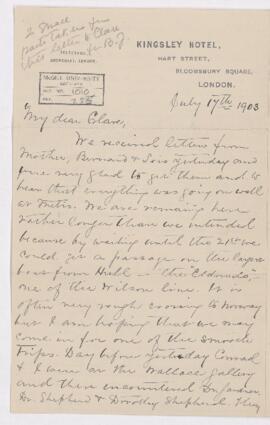 2 small
parts taken from
this letter to Clare
for B.J.
KINGSLEY HOTEL,
HART STREET,
BLOOMSBURY SQUARE,
LONDON.
TELEGRAMS,
LONDON.
McGILL UNIVERSITY
ACC. NO. 1010
REF.
July 17th 1903
My dear Clare,
We received letters from
Mother, Bernard & Sons yesterday and
were very glad to get them and to
hear that everything was going on well
at Metis. We are remaining here
rather longer than we intended
because by waiting until the 21st we
could get a passage on the large
boat from Hull – the "Eldorado",
one of the Wilson line. It is
often very rough crossing to Norway
but I am hoping that we may
come in for one of the smooth
trips. Day before yesterday Conrad
& I were at the Wallace Gallery
and there encountered Dr.
Dr. Shepherd & Dorothy Shepherd. They